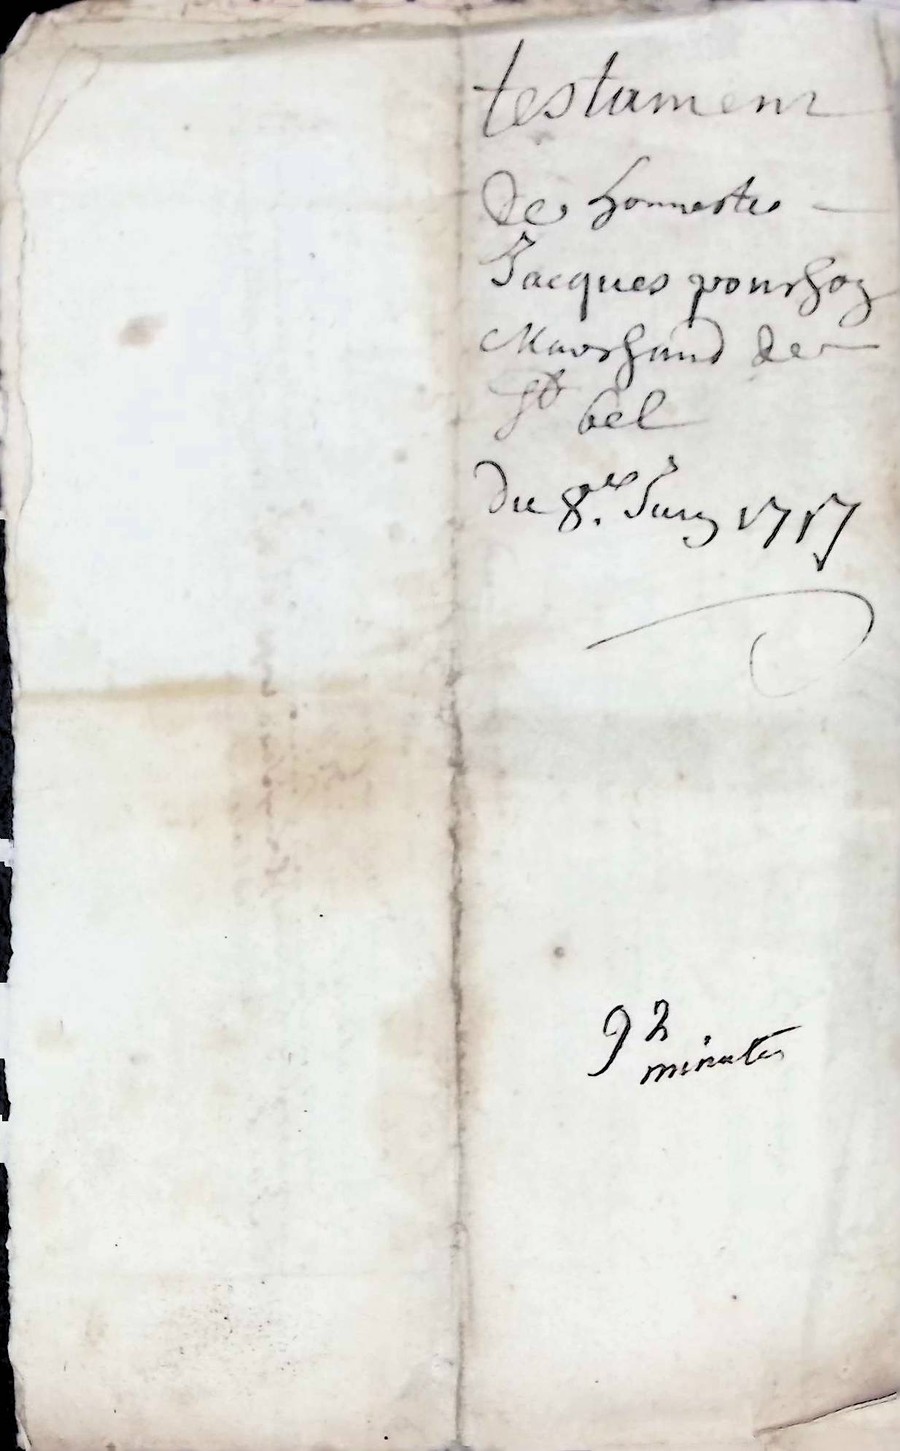 testament
de honneste
Jacques pourchoz
Marchand de
St bel
du 8.e Juin 1717
92
minutes